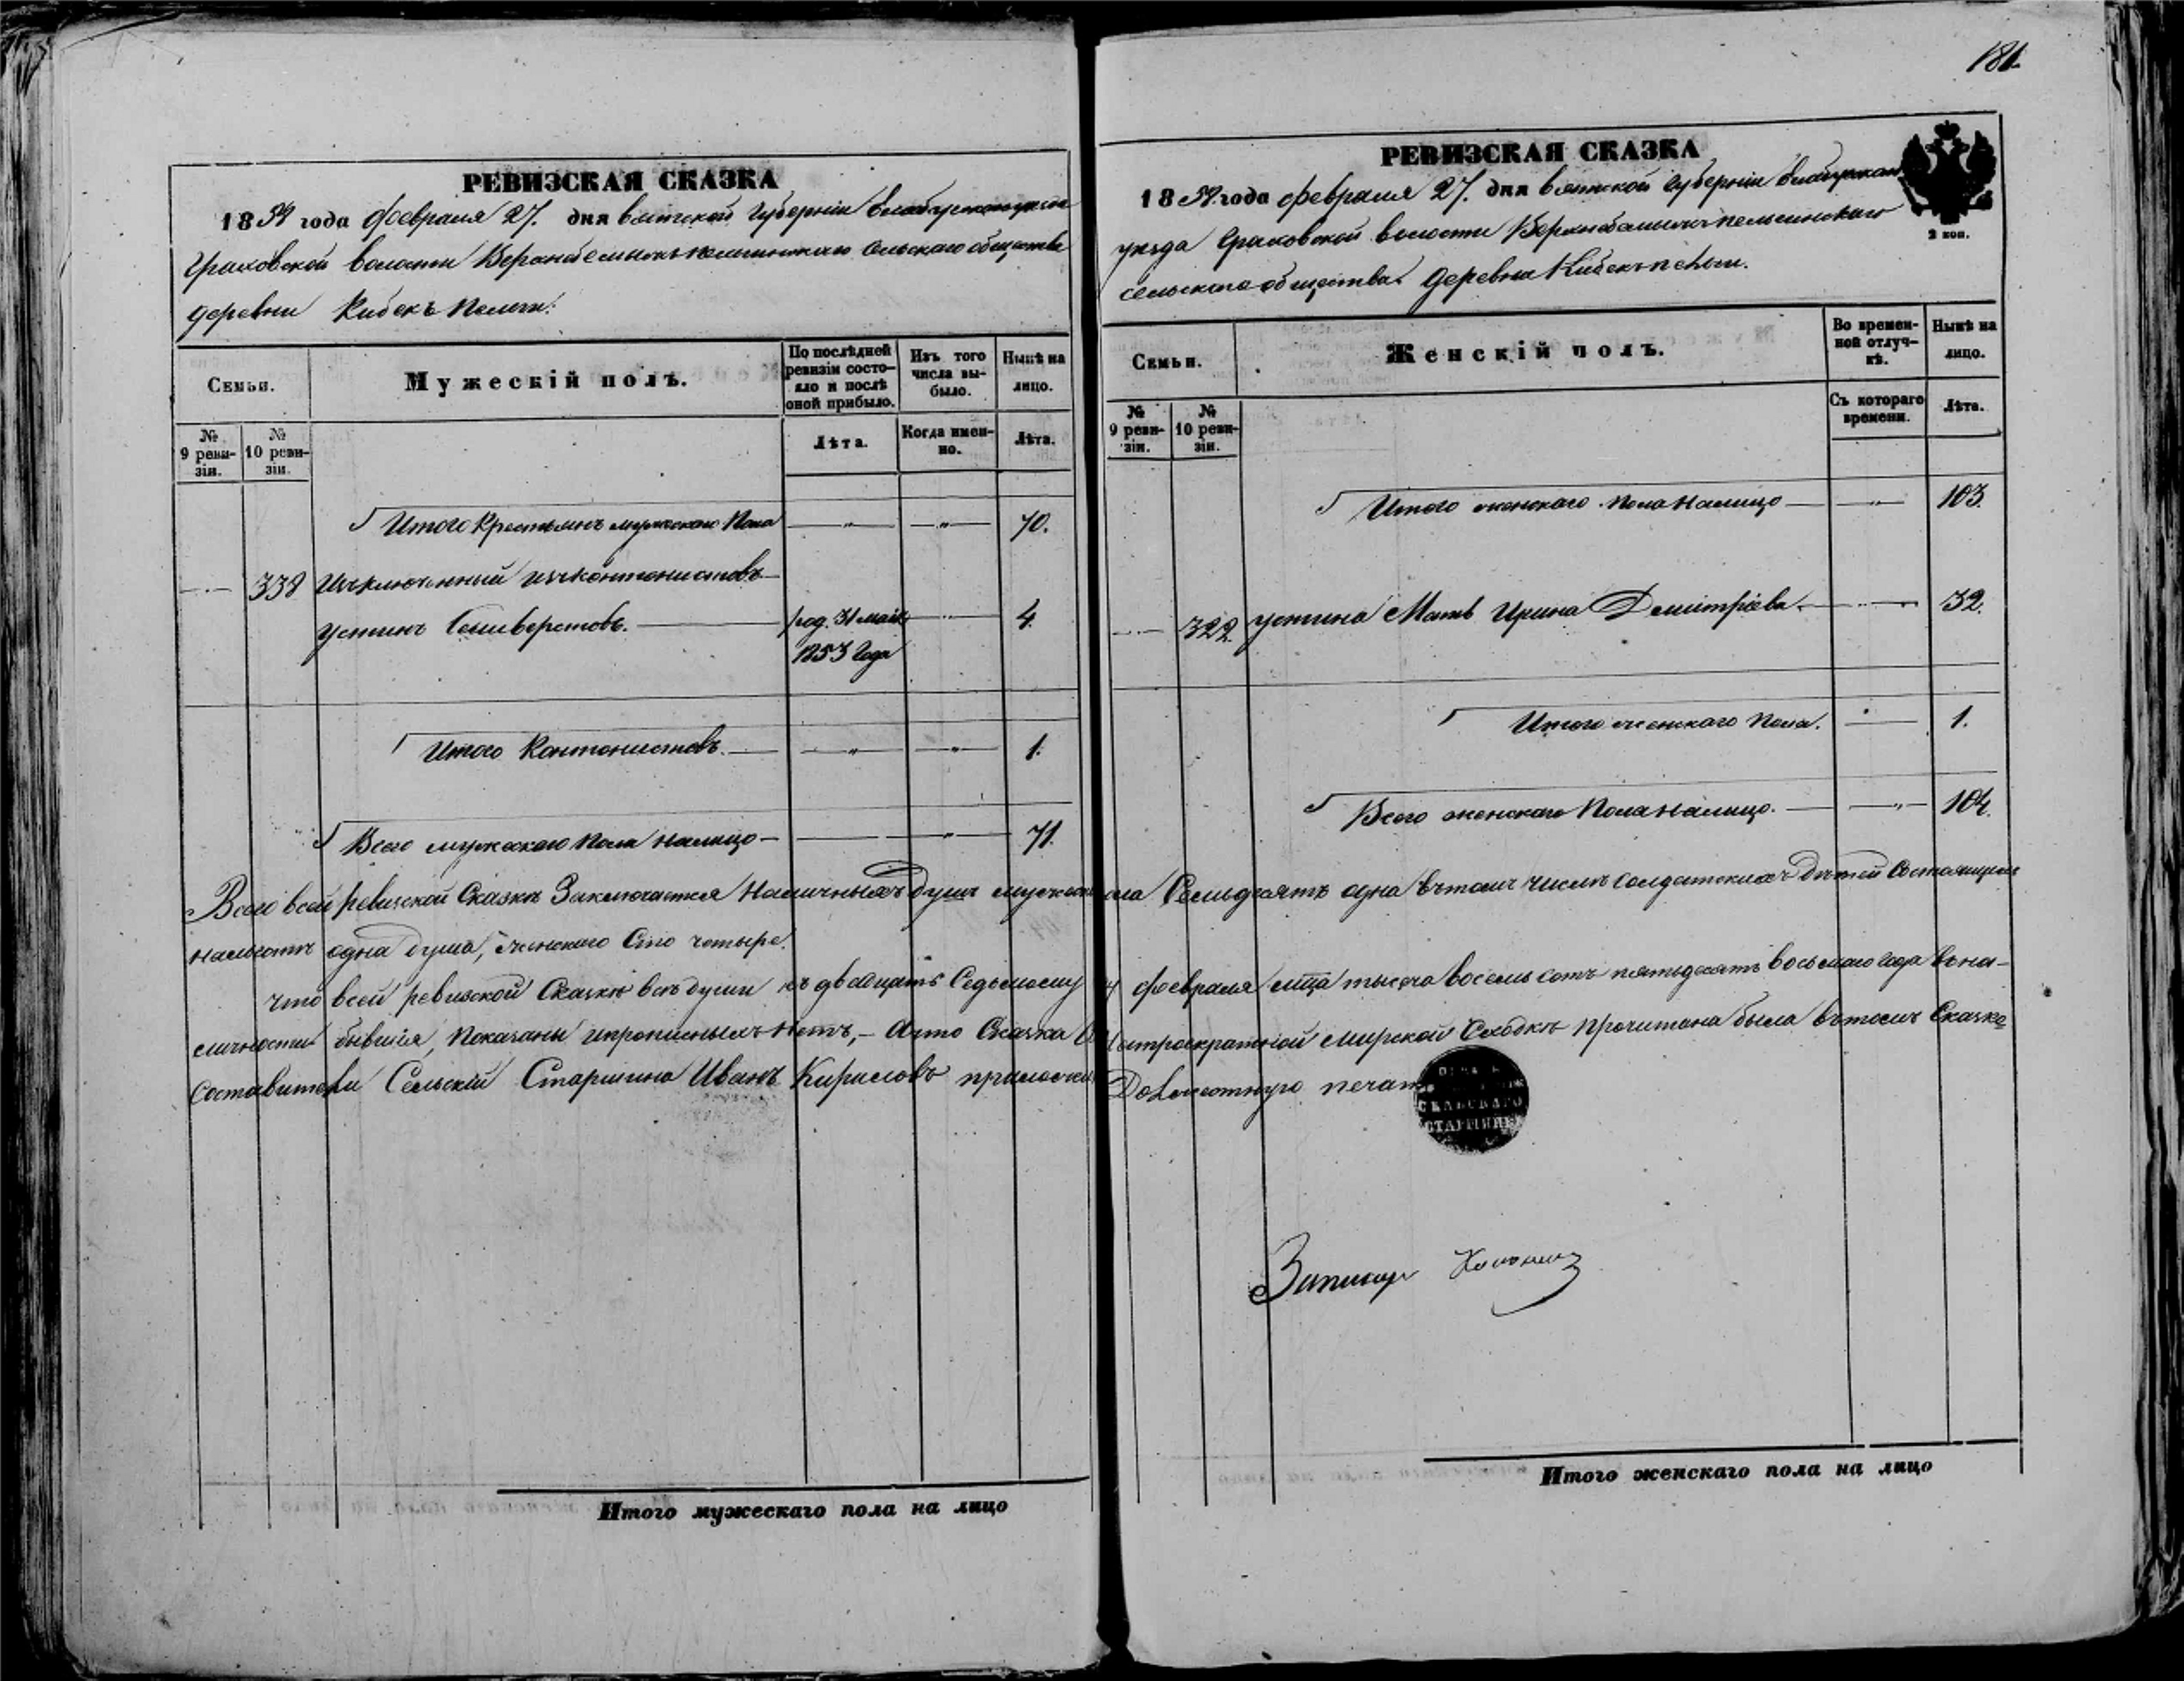 181.
РЕВИЗСКАЯ СКАЗКА
1858 года Февраля 27. дня Вятской Губерніи Елабужскаго уезда
Граховской волости сельскаго общества
деревни Кибекъ Пельги.
Семьи.
Мужескій полъ.
По послѣдней ревизіи состояло и послѣ оной прибыло.
Изъ того числа выбыло.
Нынѣ на лицо.
№ 9 ревизіи.
№ 10 ревизіи.
Лѣта.
Когда именно.
Лѣта.
Итого Крестьянъ мужескаго Пола — " — — " — 70.
338 Изключенный изъ кантонистовъ
Устинъ Селиверстовъ. род. 31 мая 4.
1853 года
Итого Кантонистовъ. — " — — " — 1.
Всего мужескаго Пола налицо — — " — 71.
РЕВИЗСКАЯ СКАЗКА
1858 года февраля 27. дня Вятской Губерніи Елабужскаго
2 коп.
уезда Граховской волости
сельскаго общества деревни Кибекъ пельги.
Семьи.
Женскій полъ.
Во временной отлучкѣ.
Нынѣ на лицо.
№ 9 ревизіи.
№ 10 ревизіи.
Съ котораго времени.
Лѣта.
Итого женскаго Пола налицо — — " — 103.
322. Устина Мать Ирина Дмитріева. 32.
Итого женскаго Пола. — 1.
Всего женскаго Пола налицо. — — " — 104.
Всего в сей ревизской Сказкѣ Заключается Наличныхъ Душъ мужеска пола Семьдесятъ одна въ томъ числѣ солдатскихъ дѣтей состоящихъ
одна душа, женскаго Сто четыре.
Что в сей ревизской Сказкѣ всѣ души къ двадцать Седьмому февраля мца тысяча восемь сотъ пятьдесятъ восьмаго года въ на-
личности бывшія, показаны и прописныхъ нетъ, — А что Сказка мирской Сходкѣ прочитана была въ томъ Сказке
составители Сельскій Старшина Иванъ Кириловъ приложилъ Должностную печать
СЕЛЬСКАГО
СТАРШИНЫ
Итого мужескаго пола на лицо
Итого женскаго пола на лицо